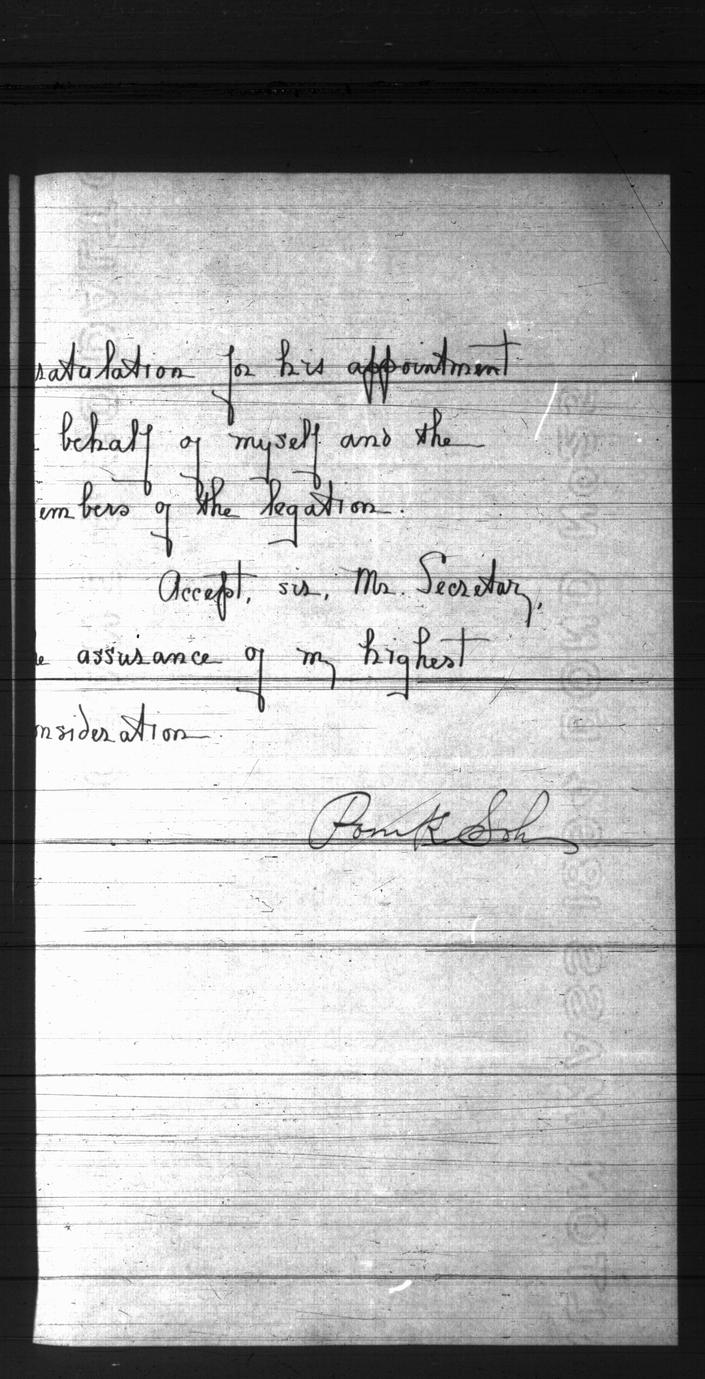 ratulation for his appointment
behalf of myself and the
embers of the legation.
Accept, sir, Mr. Secretary,
e assurance of my highest
onsideration
Pom K. Soh